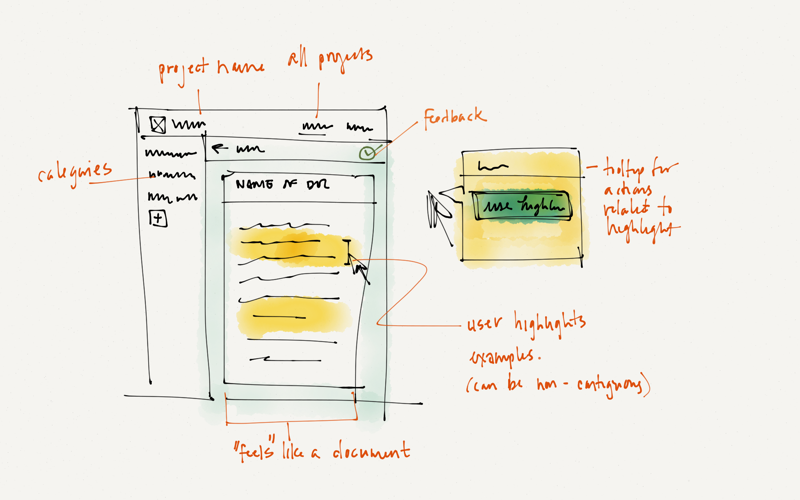 project name
all projects
feedback
categories
NAME OF DOC
use highlight
tooltip for
actions
related to
highlight
user highlights
examples.
(can be non-contiguous)
"feels" like a document